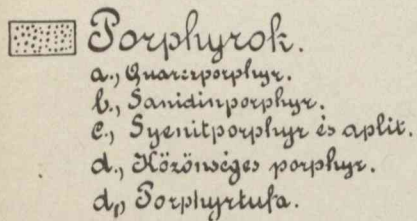 Porphyrok.
a., Quarczporphyr.
b., Sanidinporphyr.
c., Syenitporphyr és aplit.
d., Közönséges porphyr.
d₁, Porphyrtufa.